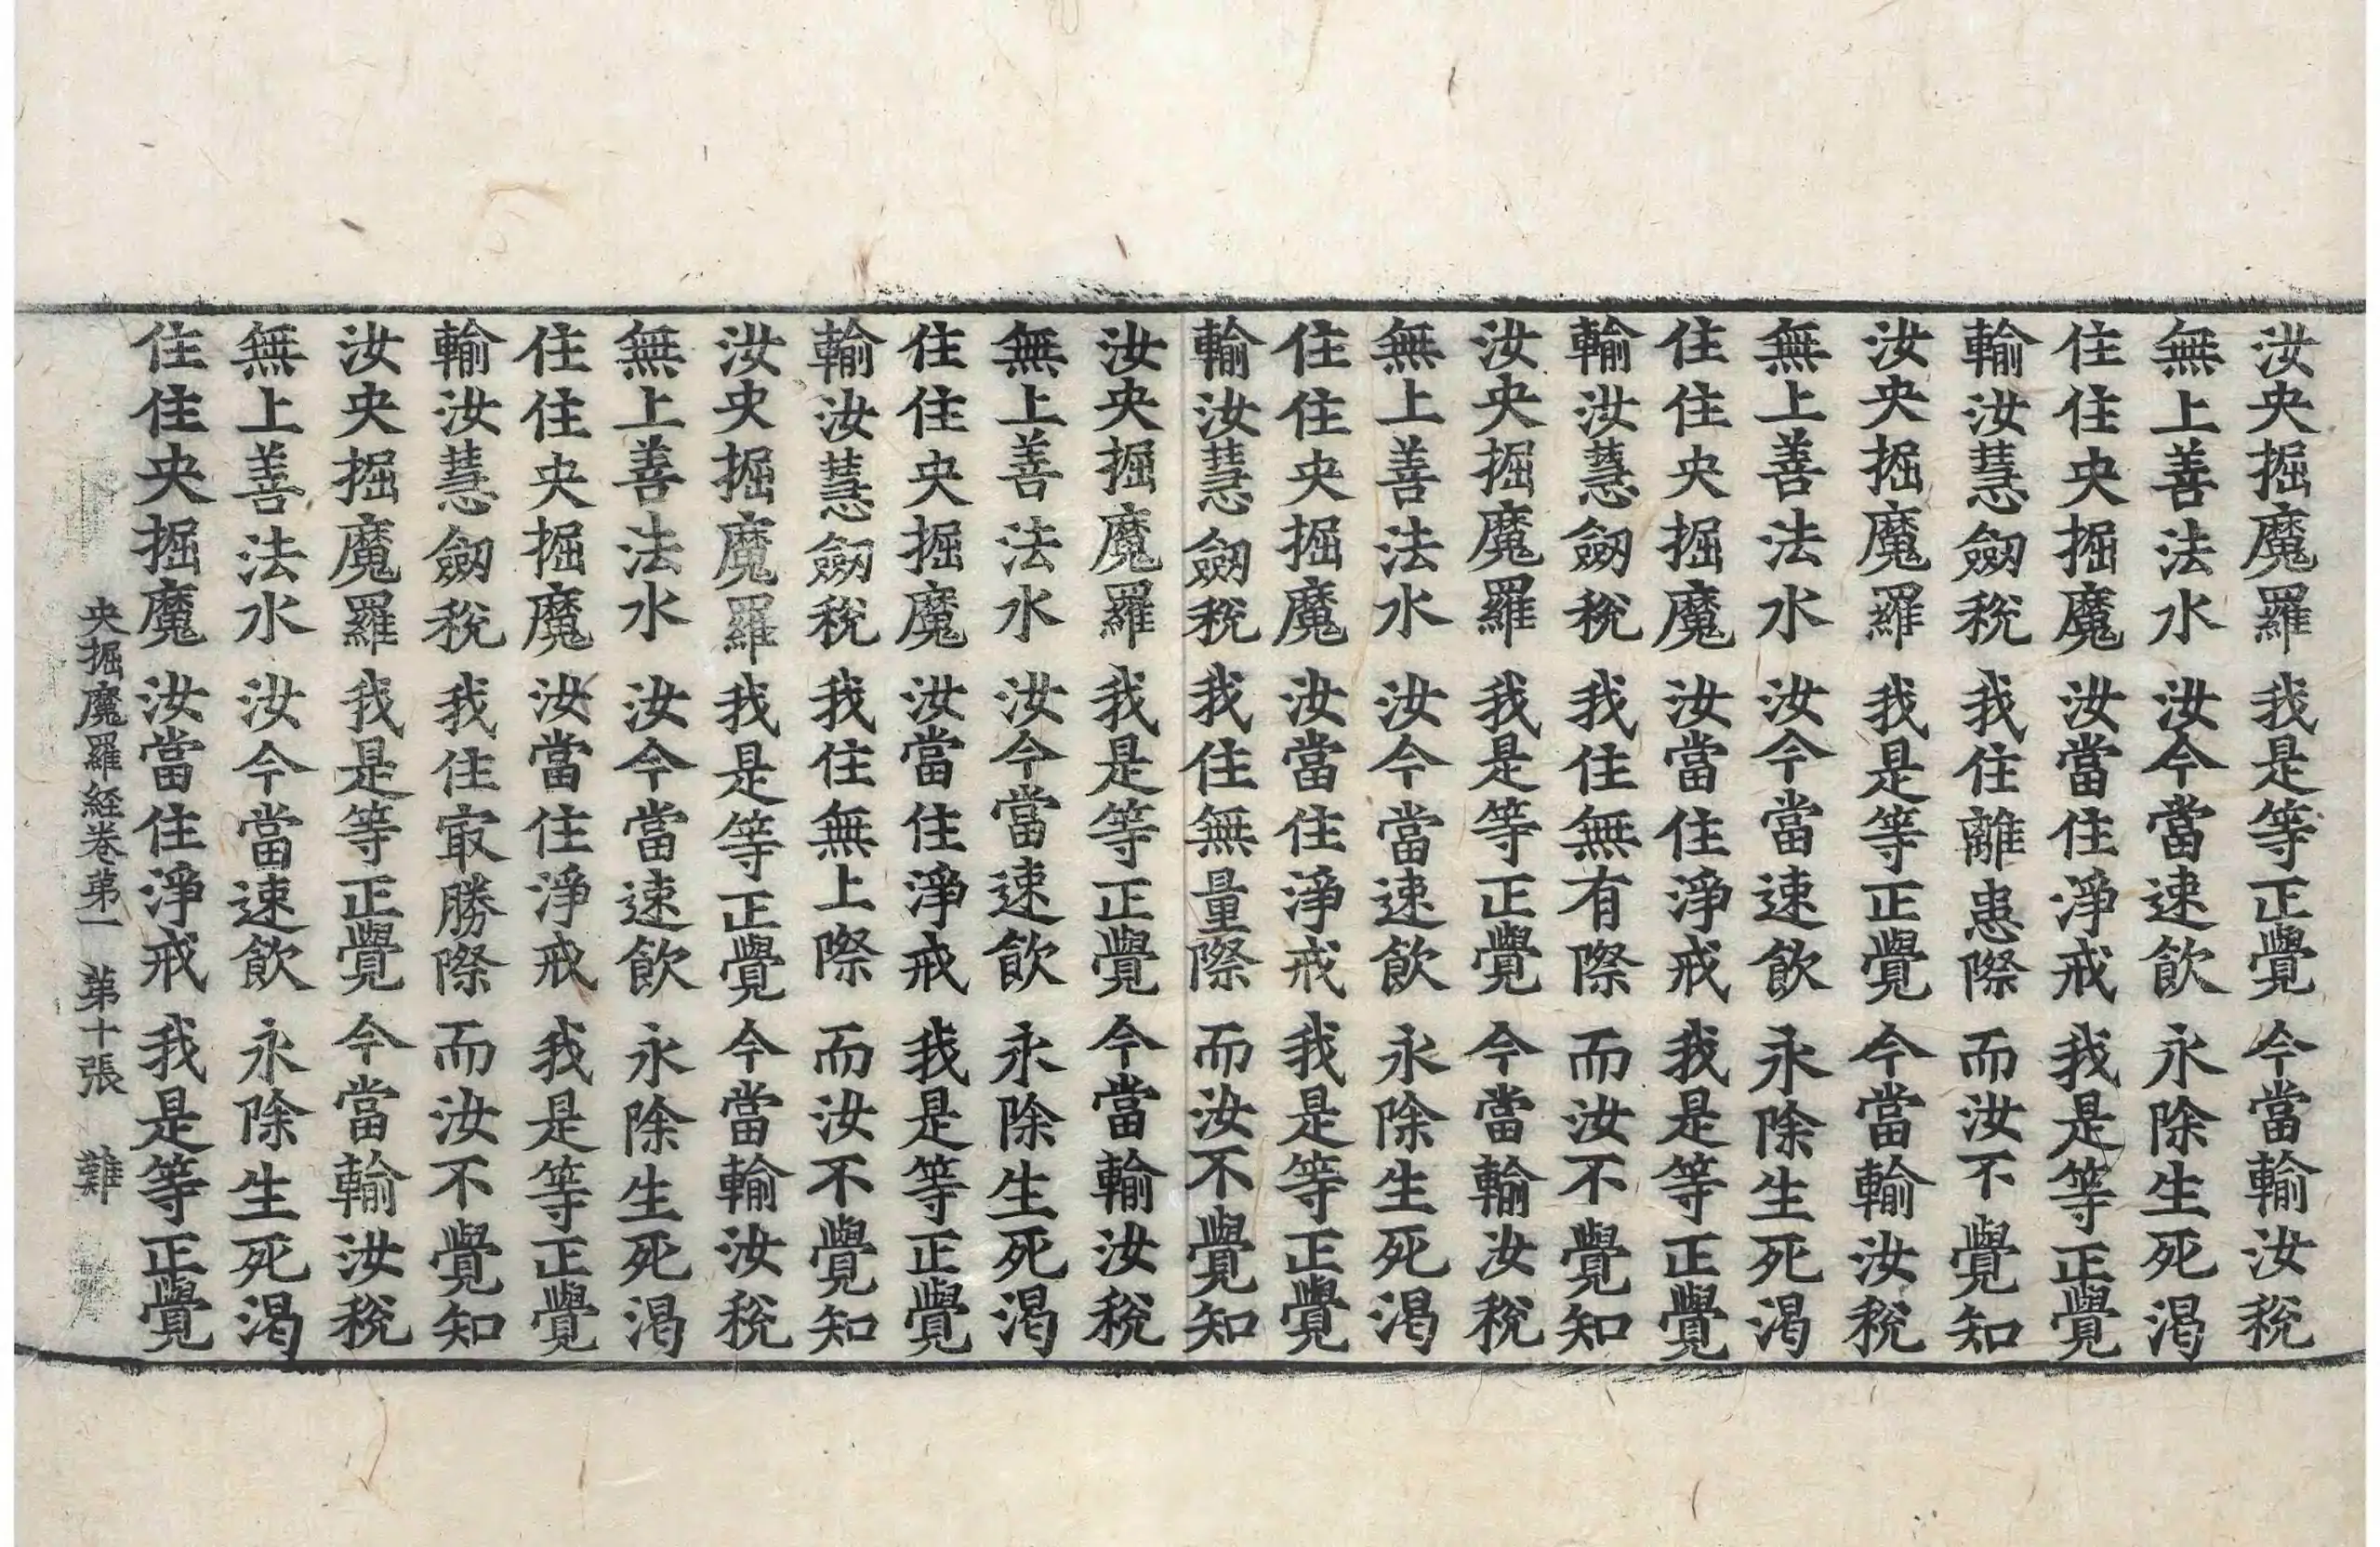 汝央掘魔羅 我是等正覺 今當輸汝稅
無上善法水 汝今當速飲 永除生死渴
住住央掘魔 汝當住淨戒 我是等正覺
輸汝慧劒稅 我住離患際 而汝不覺知
汝央掘魔羅 我是等正覺 今當輸汝稅
無上善法水 汝今當速飲 永除生死渴
住住央掘魔 汝當住淨戒 我是等正覺
輸汝慧劒稅 我住無有際 而汝不覺知
汝央掘魔羅 我是等正覺 今當輸汝稅
無上善法水 汝今當速飲 永除生死渴
住住央掘魔 汝當住淨戒 我是等正覺
輸汝慧劒稅 我住無量際 而汝不覺知
汝央掘魔羅 我是等正覺 今當輸汝稅
無上善法水 汝今當速飲 永除生死渴
住住央掘魔 汝當住淨戒 我是等正覺
輸汝慧劒稅 我住無上際 而汝不覺知
汝央掘魔羅 我是等正覺 今當輸汝稅
無上善法水 汝今當速飲 永除生死渴
住住央掘魔 汝當住淨戒 我是等正覺
輸汝慧劒稅 我住㝡勝際 而汝不覺知
汝央掘魔羅 我是等正覺 今當輸汝稅
無上善法水 汝今當速飲 永除生死渴
住住央掘魔 汝當住淨戒 我是等正覺
央掘魔羅経卷苐一 苐十張 難